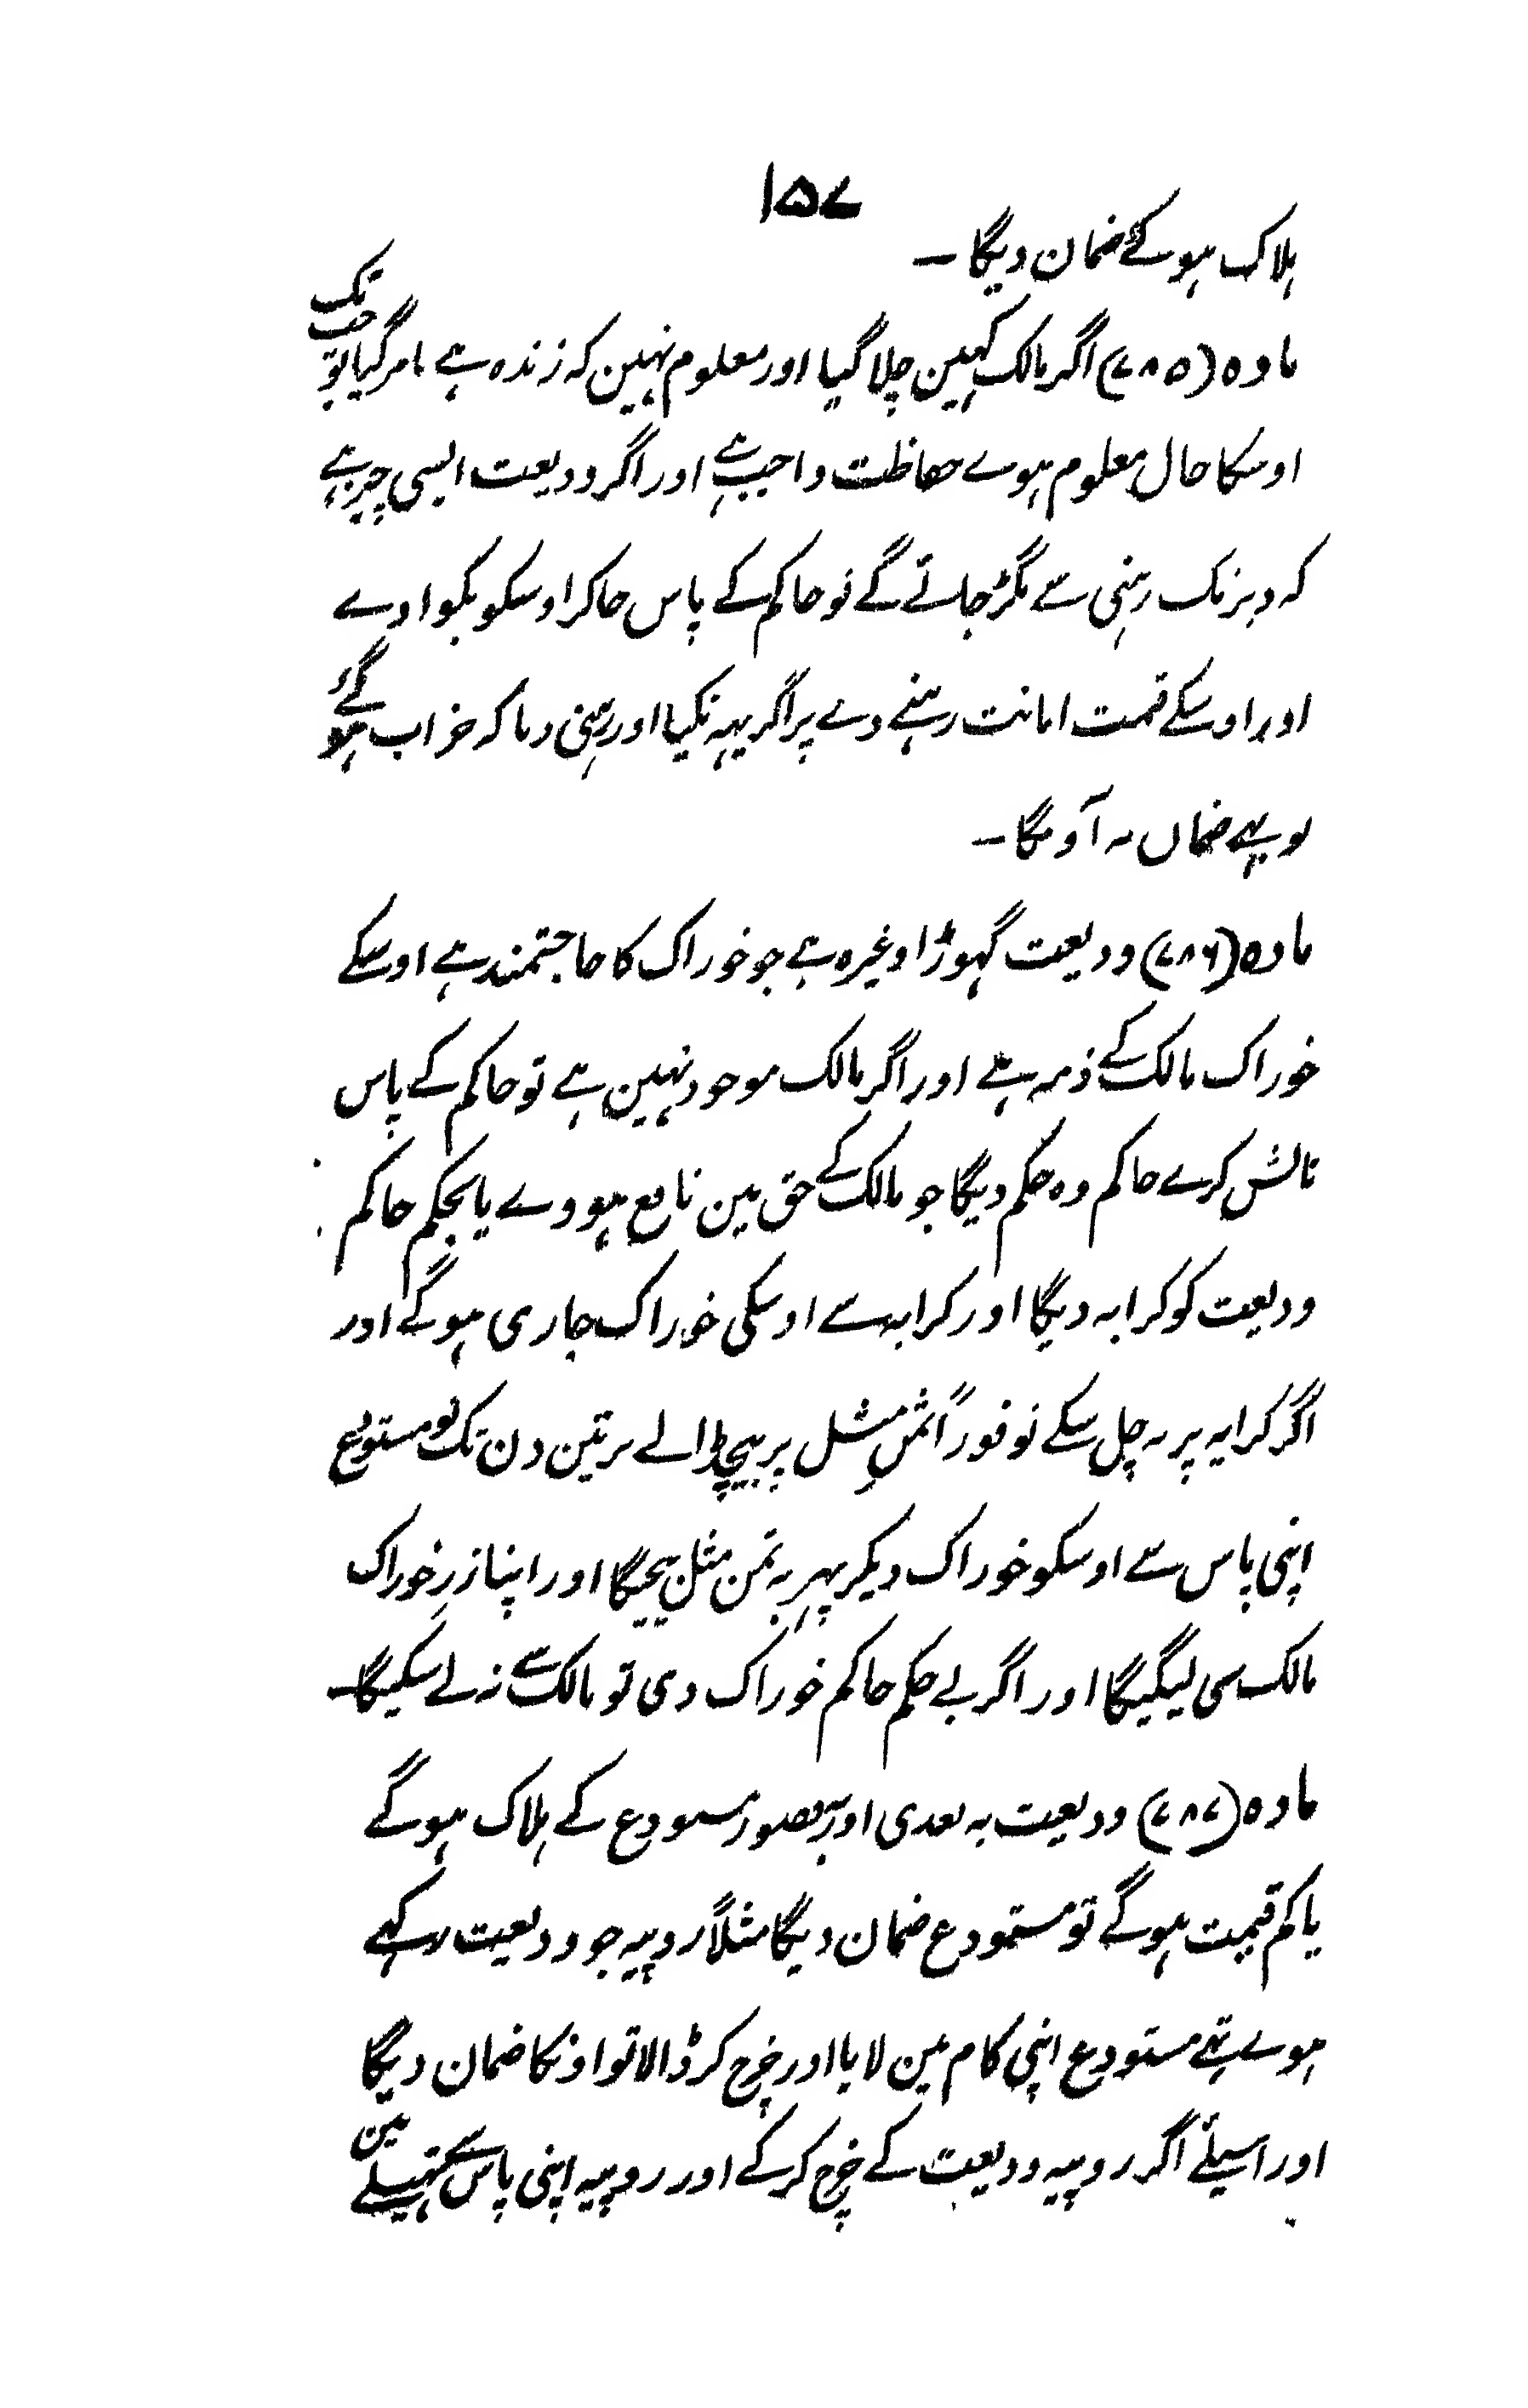 ۱۵۷
ہلاک ہوگئے ضمان دیگا ۔
مادہ (۷۸۵) اگر مالک کہین چلا گیا اور معلوم نہین کہ زندہ ہے یا مرگیا تو جب تک
اوسکا حال معلوم ہووے حفاظت واجب ہے اور اگر ودیعت ایسی چیز ہے
کہ دیر تک رہنی سے بگڑ جائے گے تو حاکم کے پاس جاکر اوسکو بکوا دے
اور اوسکے قیمت امانت رہنے دے پر اگر یہہ نکیا اور رہنی دیا کہ خراب ہوگئے
تو یہے ضمان نہ آویگا ۔
مادہ (۷۸۶) ودیعت گہوڑا وغیرہ ہے جو خوراک کا حاجتمند ہے اوسکے
خوراک مالک کے ذمہ ہے اور اگر مالک موجود نہین ہے تو حاکم کے پاس
نالش کرے حاکم وہ حکم دیگا جو مالک کے حق مین نافع ہووے یا بحکم حاکم
ودیعت کو کرایہ دیگا اور کرایہ سے اوسکی خوراک جاری ہوگے اور
اگر کرایہ پر نہ چل سکے تو فوراً ثمنِ مثل پر بیچ ڈالے تین دن تک تو مستودع
اپنی پاس سے اوسکو خوراک دیکر پہر بہ ثمن مثل بیچیگا اور اپنا زرِ خوراک
مالک سی لیگیگا اور اگر بے حکم حاکم خوراک دی تو مالک سے نہ لے سکیگا ۔
مادہ (۷۸۷) ودیعت بہ تعدی اور بقصور مستودع کے ہلاک ہوگے
یا کم قیمت ہوگے تو مستودع ضمان دیگا مثلاً روپیہ جو ودیعت رکہے
ہوے تہے مستودع اپنی کام مین لایا اور خرچ کر ڈالا تو اونکا ضمان دیگا
اور اسیلئے اگر روپیہ ودیعت کے خرچ کرکے اور روپیہ اپنی پاس سے تہیلے مین